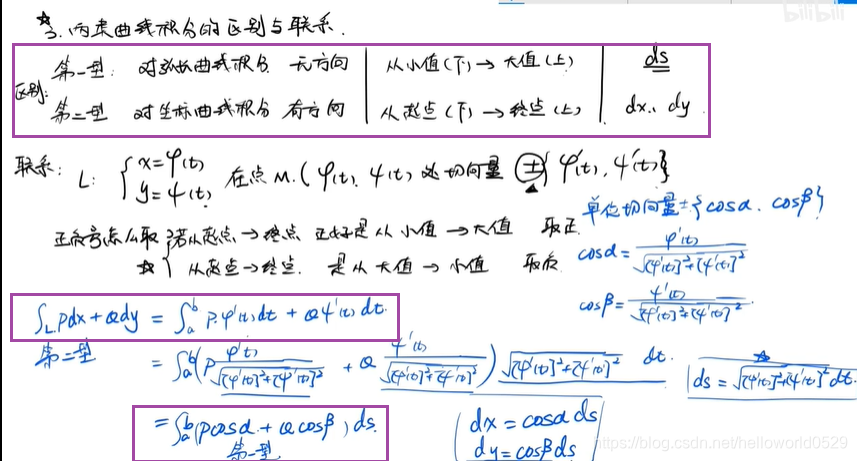 bilibili
☆ 3. 两类曲线积分的区别与联系.
区别: 第一型: 对弧长曲线积分 无方向 | 从小值(下) → 大值(上) | ds
第二型 对坐标曲线积分 有方向 | 从起点(下) → 终点(上) | dx、dy
联系: L: { x=φ(t) y=ψ(t) 在点M.(φ(t), ψ(t) 处 切向量 ±{φ'(t), ψ'(t)}
单位切向量 ±{cosα. cosβ}
正负号怎么取 { 若从起点 → 终点 正好是 从小值 → 大值 取正.
☆ 从起点 → 终点. 是从大值 → 小值 取反
cosα = φ'(t) / √([φ'(t)]²+[ψ'(t)]²)
cosβ = ψ'(t) / √([φ'(t)]²+[ψ'(t)]²)
∫_L Pdx + Qdy = ∫_a^b P·φ'(t)dt + Qψ'(t)dt.
第二型
= ∫_a^b (P φ'(t) / √([φ'(t)]²+[ψ'(t)]²) + Q ψ'(t) / √([φ'(t)]²+[ψ'(t)]²)) √([φ'(t)]²+[ψ'(t)]²) dt.
☆ ds = √([φ'(t)]²+[ψ'(t)]²) dt.
= ∫_a^b (Pcosα + Qcosβ) ds.
第一型
dx = cosα ds
dy = cosβ ds
https://blog.csdn.net/helloworld0529